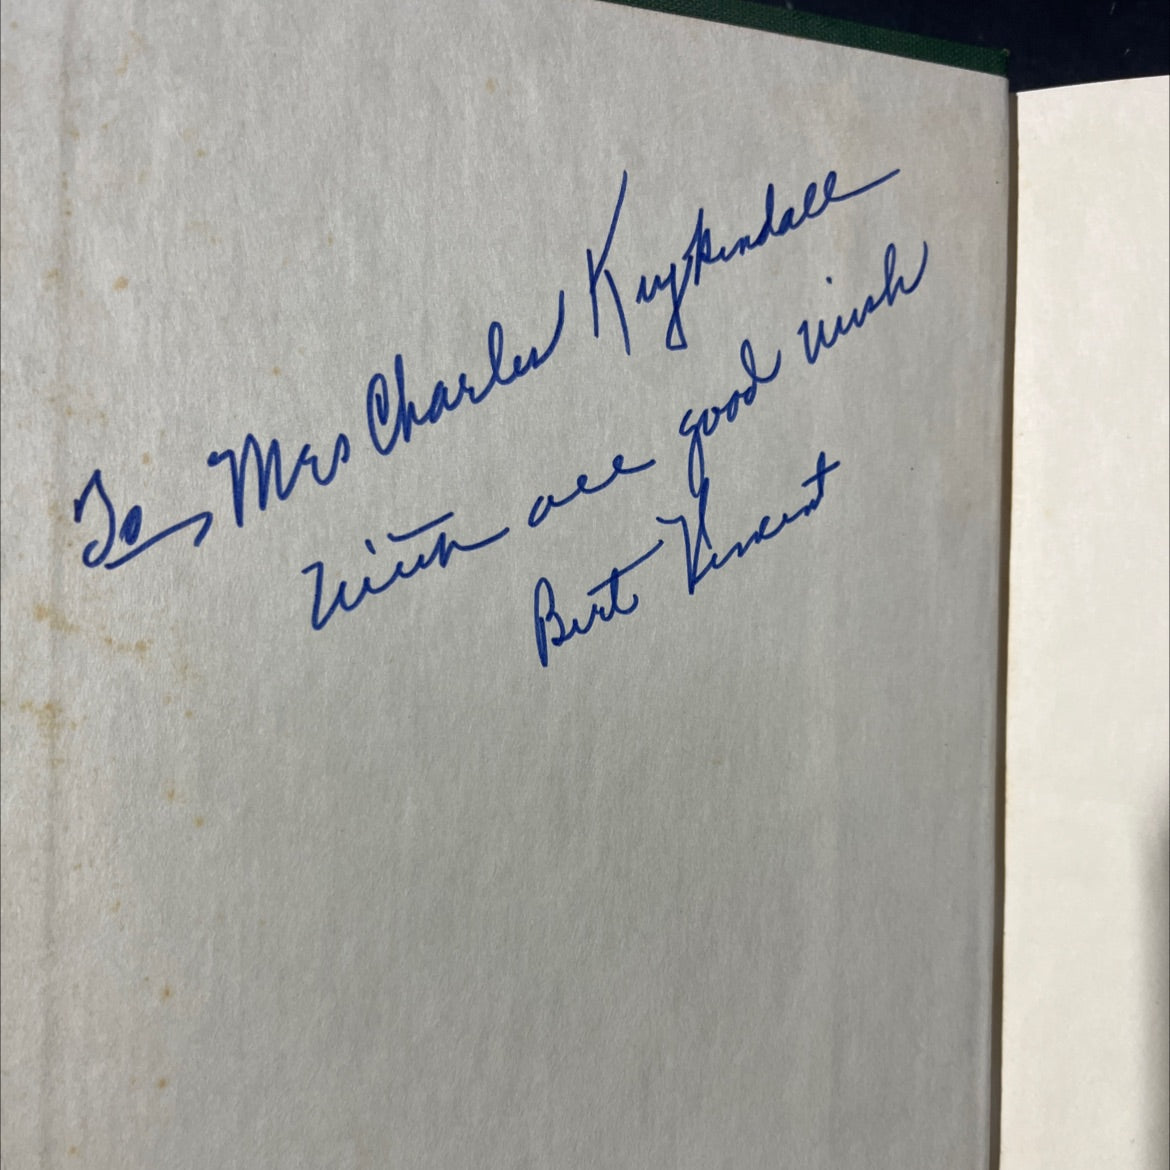 To Mrs Charles Kuykendall
with all good wish
Bert Vincent